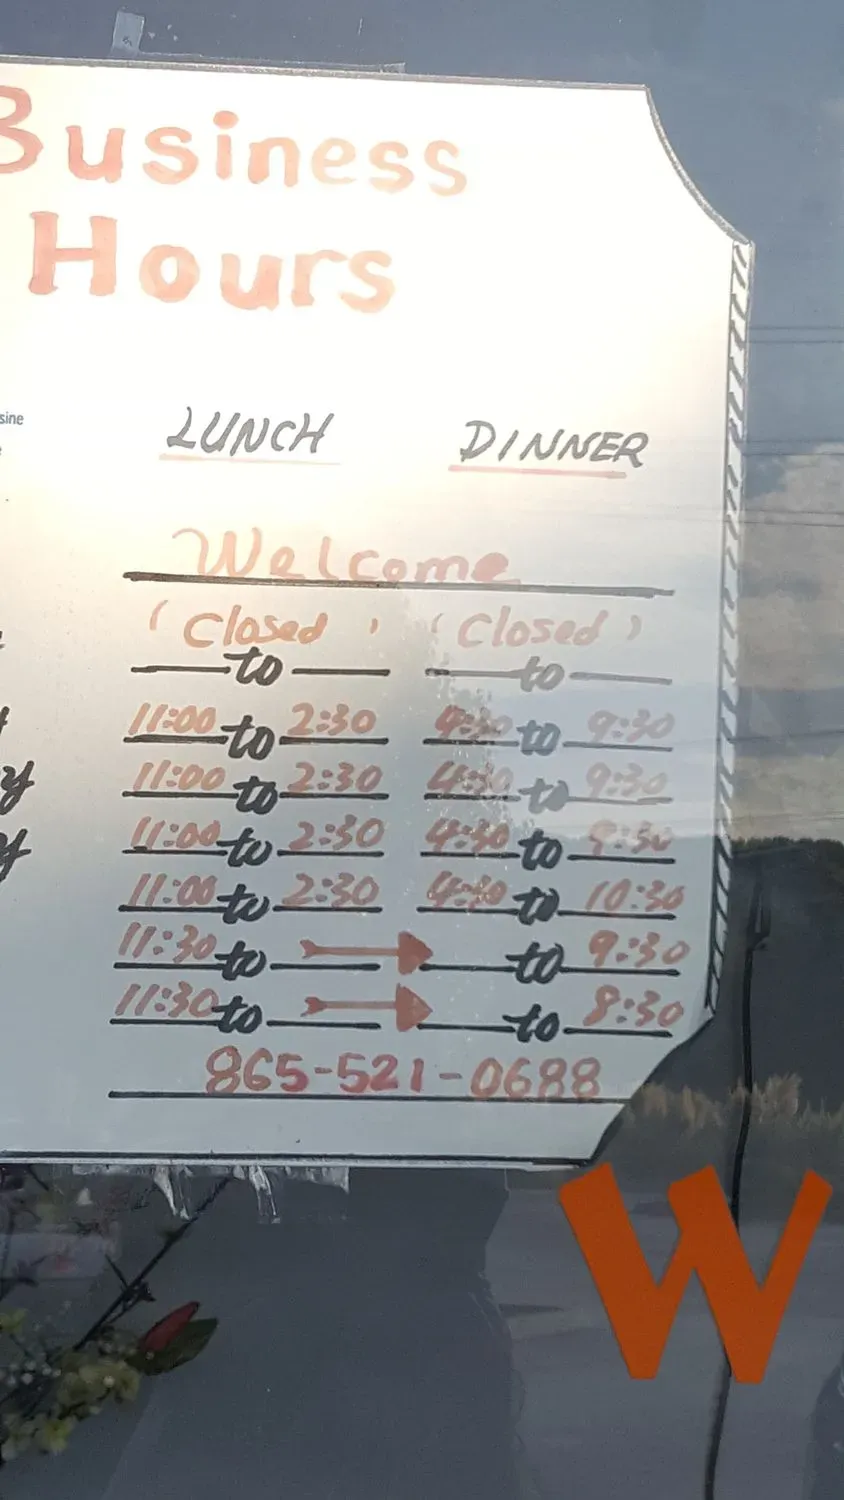 Business
Hours
sine
LUNCH DINNER
Welcome
(Closed) (Closed)
to to
11:00 to 2:30 4:30 to 9:30
11:00 to 2:30 4:30 to 9:30
y 11:00 to 2:30 4:30 to 9:30
y 11:00 to 2:30 4:30 to 10:30
11:30 to to 9:30
11:30 to to 8:30
865-521-0688
W